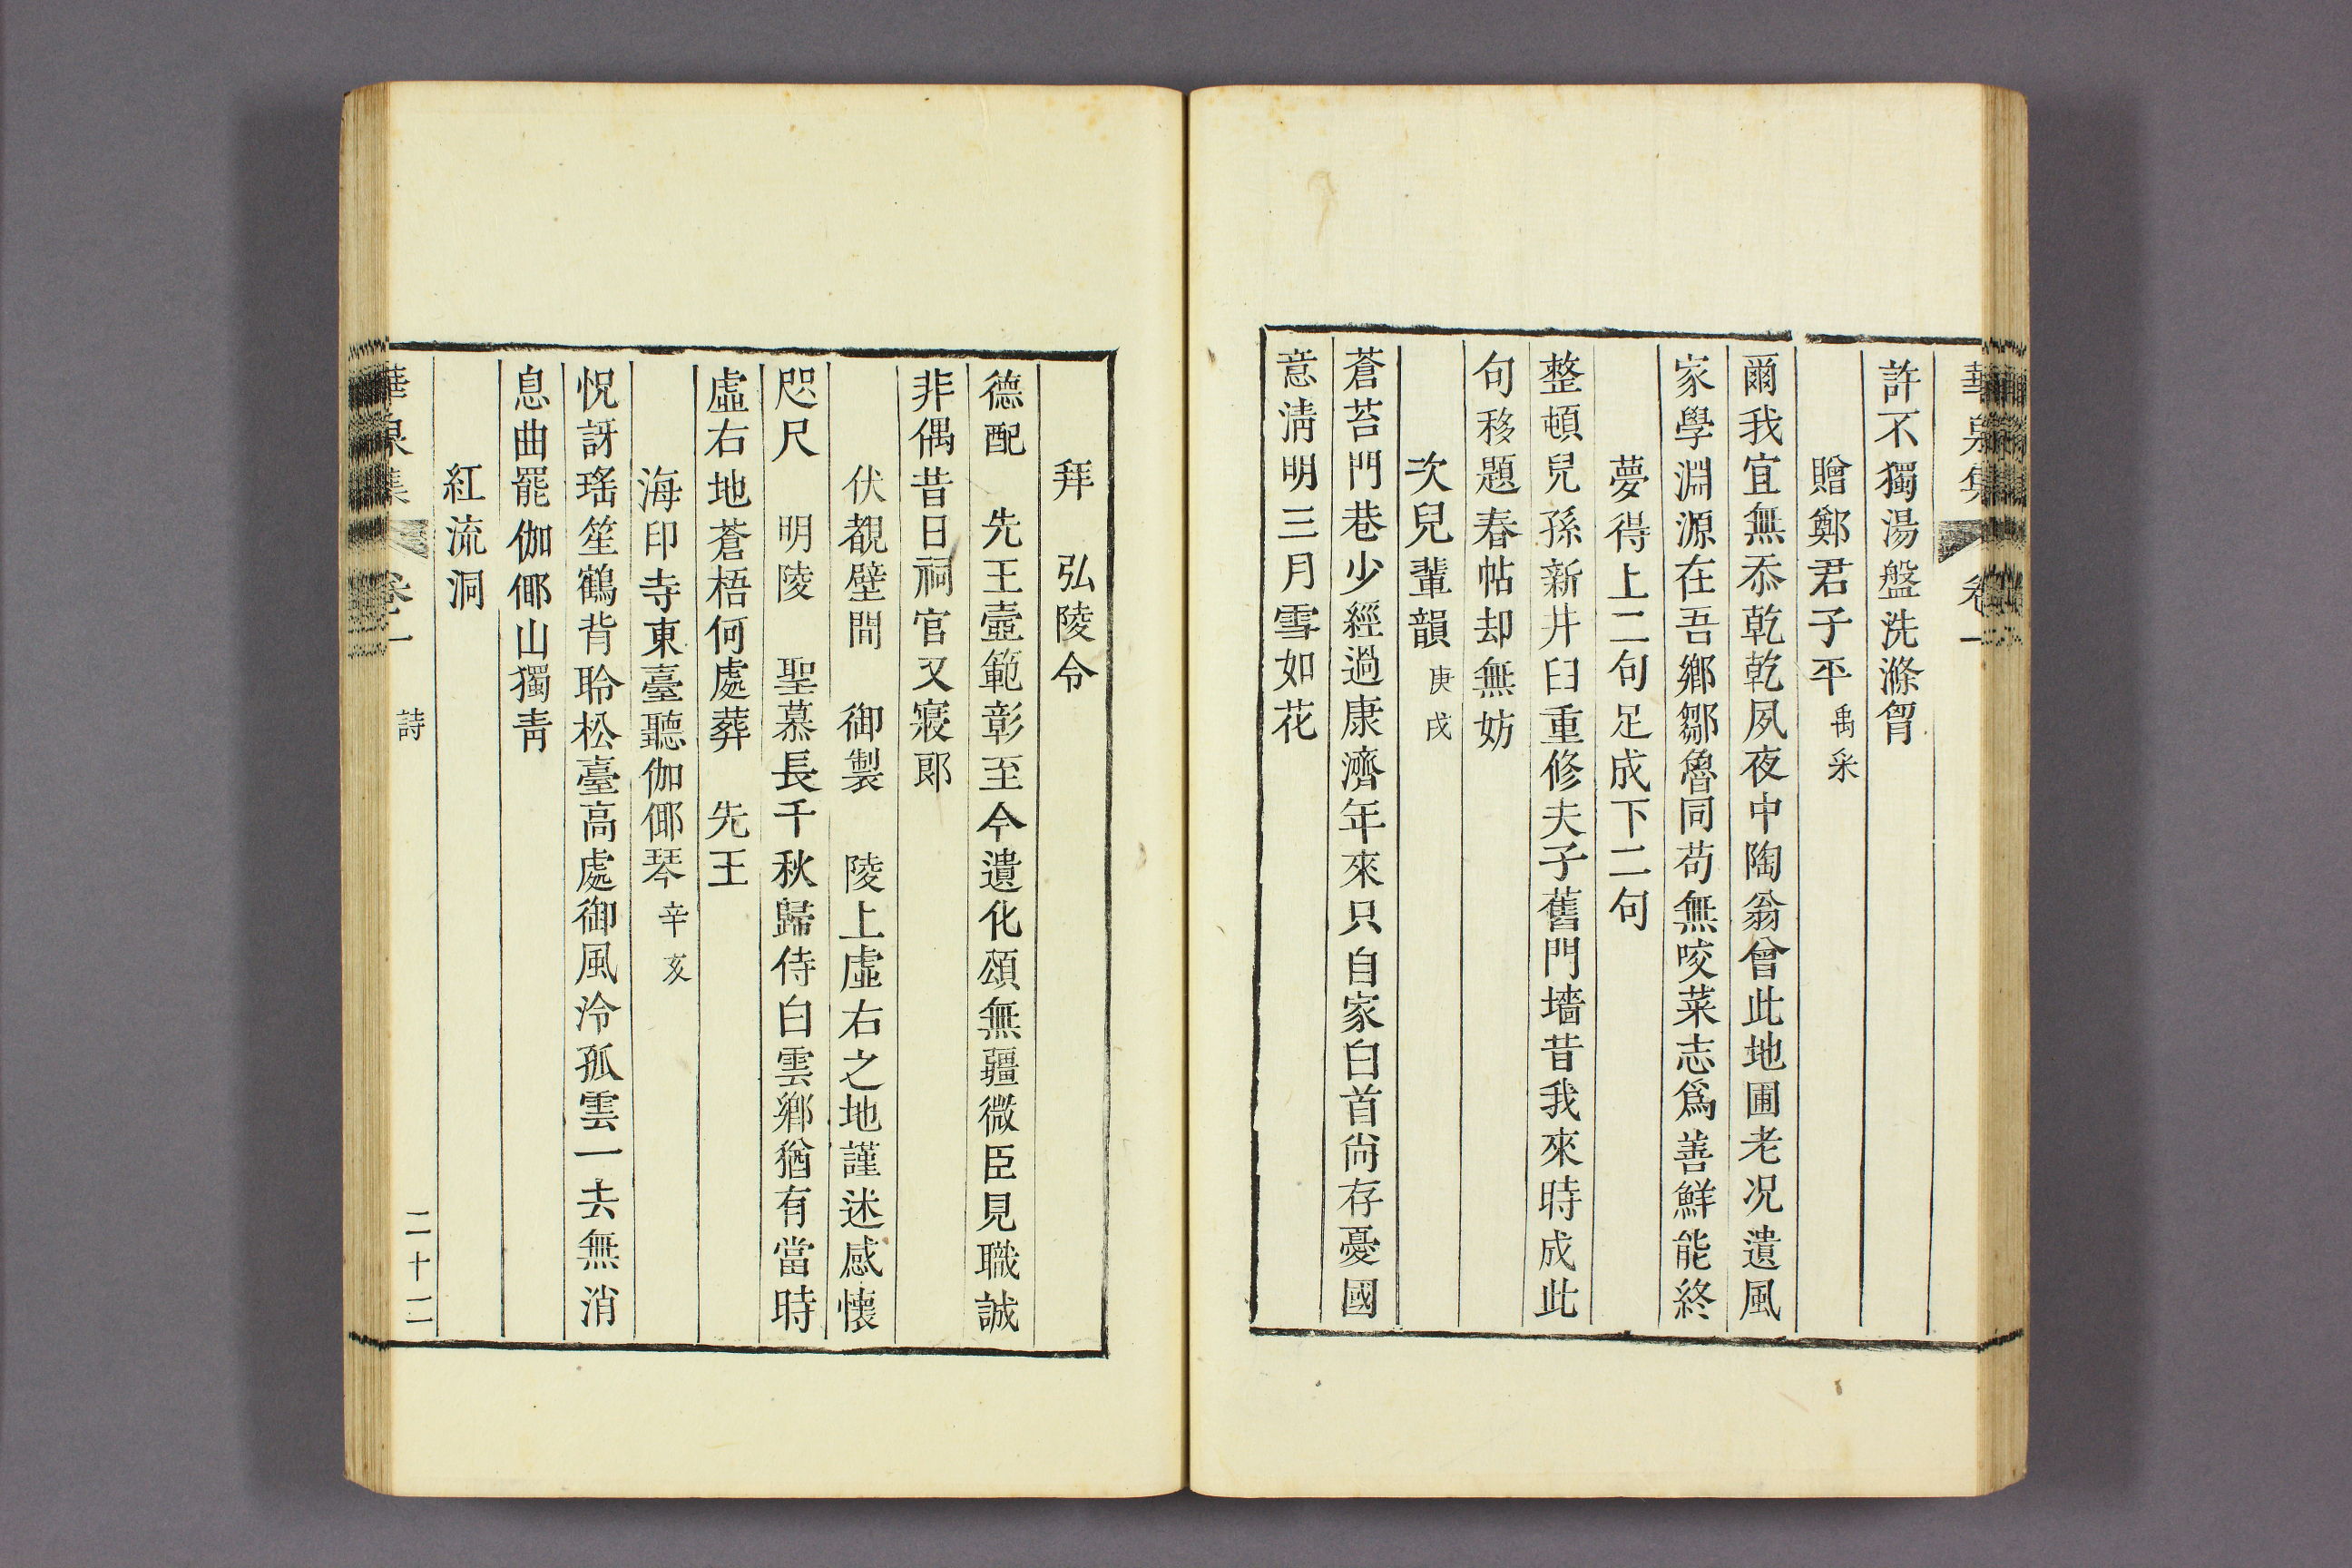 許不獨湯盤洗滌胷
贈鄭君子平 禹采
爾我宜無忝乾乾夙夜中陶翁曾此地圃老况遺風
家學淵源在吾鄉鄒魯同苟無咬菜志爲善鮮能終
夢得上二句足成下二句
整頓兒孫新井臼重修夫子舊門墻昔我來時成此
句移題春帖却無妨
次兒輩韻 庚戌
蒼苔門巷少經過康濟年來只自家白首尙存憂國
意淸明三月雪如花
拜 弘陵令
德配 先王壼範彰至今遺化頌無疆微臣見職誠
非偶昔日祠官又寢郞
伏覩壁間 御製 陵上虛右之地謹述感懷
咫尺 明陵 聖慕長千秋歸侍白雲鄉猶有當時
虛右地蒼梧何處葬 先王
海印寺東臺聽伽倻琴 辛亥
怳訝瑤笙鶴背聆松臺高處御風泠孤雲一去無消
息曲罷伽倻山獨靑
紅流洞
卷一
詩
二十二